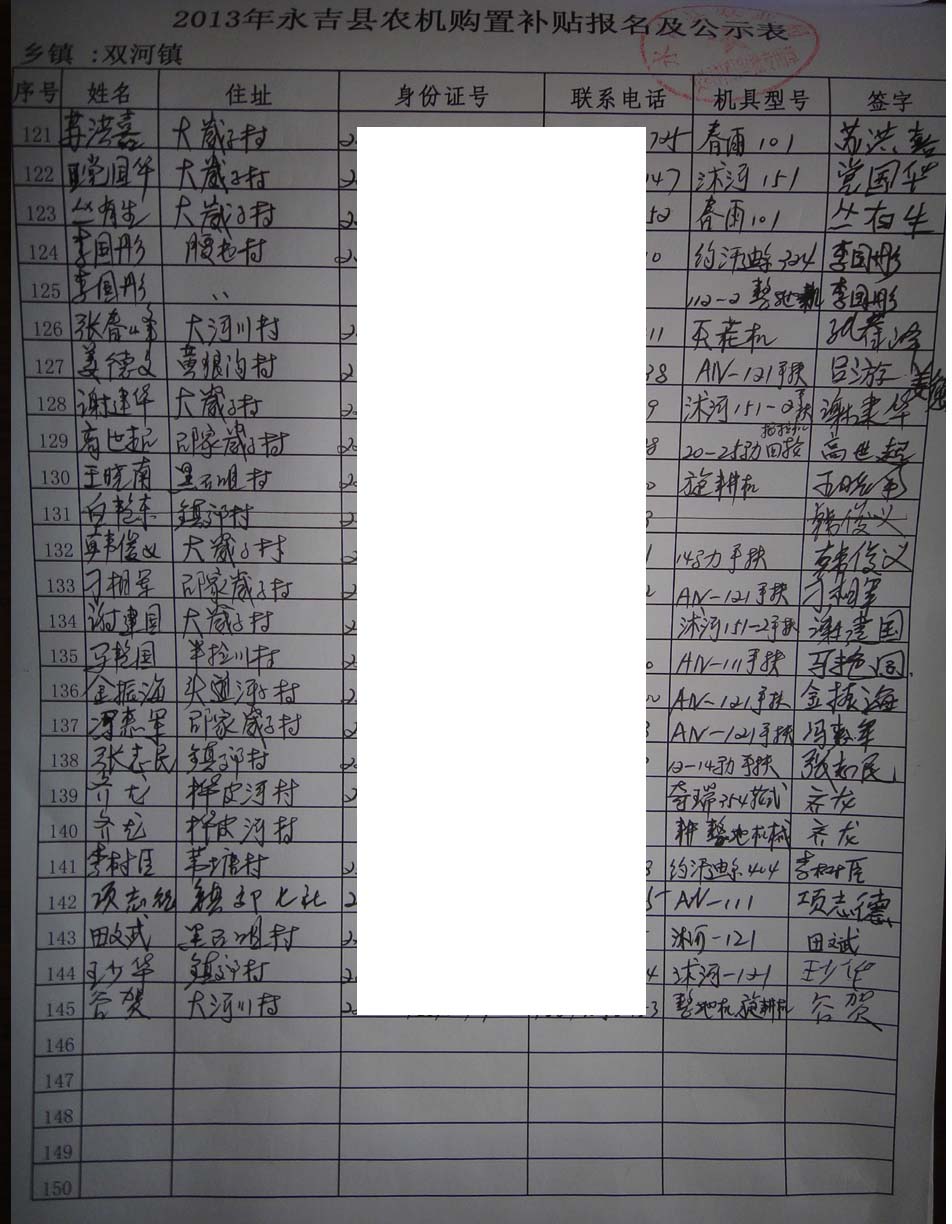 2013年永吉县农机购置补贴报名及公示表
乡镇 :双河镇
序号 姓名 住址 身份证号 联系电话 机具型号 签字
121 苏洪嘉 大崴子村 2 725 春雨101 苏洪嘉
122 党国华 大崴子村 2 147 沭河151 党国华
123 丛有生 大崴子村 2 52 春雨101 丛有生
124 李国彤 腰屯村 2 0 约沃迪尔324 李国彤
125 李国彤 〃 112-2 整地机 李国彤
126 张春 大河川村 2 11 灭茬机 张春
127 姜德文 黄狼沟村 2 38 AN-121手扶 吕游 姜德
128 谢建华 大崴子村 2 9 沭河151-2手扶 谢建华
129 高世起 邵家崴子村 2 8 20-25动 高世起
130 王晓南 黑石咀村 2 0 旋耕机 王晓南
131 白艳东 镇郊村 2 3 韩俊义
132 韩俊义 大崴子村 2 1 14动力手扶 韩俊义
133 刁相军 邵家崴子村 2 2 AN-121手扶 刁相军
134 谢建国 大崴子村 2 沭河151-2手扶 谢建国
135 马艳国 半拉川村 2 0 AN-111手扶 马艳国
136 金振海 头道河子村 2 0 AN-121手扶 金振海
137 冯志军 邵家崴子村 2 3 AN-121手扶 冯志军
138 张志民 镇郊村 2 12-14动手扶 张志民
139 齐龙 桦皮河村 2 奇瑞354 齐龙
140 齐龙 桦皮河村 耕整地机械 齐龙
141 李树臣 苇塘村 2 3 约沃迪尔404 李树臣
142 项志德 镇郊七社 2 5 AN-111 项志德
143 田文斌 黑石咀村 2 沭河-121 田文斌
144 王少华 镇郊村 2 4 沭河-121 王少华
145 谷贺 大河川村 2 3 整地机旋耕机 谷贺
146
147
148
149
150